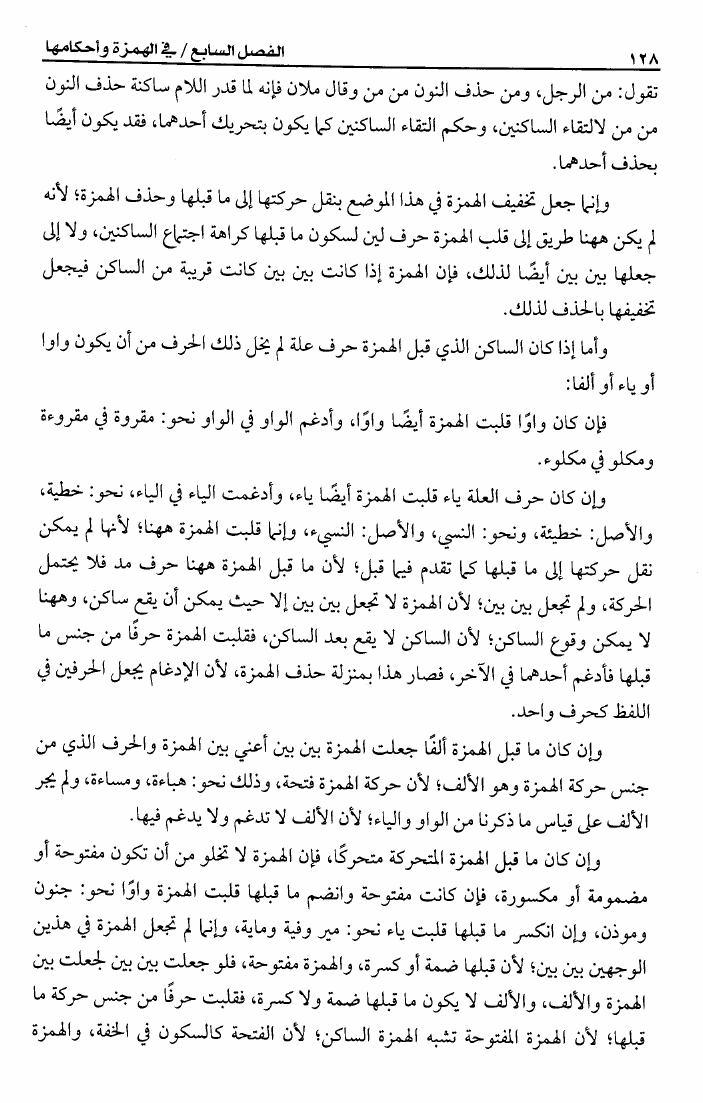 ١٢٨
الفصل السابع/ في الهمزة وأحكامها
تقول: من الرجل، ومن حذف النون من من وقال ملان فإنه لما قدر اللام ساكنة حذف النون
من من لالتقاء الساكنين، وحكم التقاء الساكنين كما يكون بتحريك أحدهما، فقد يكون أيضًا
بحذف أحدهما.
وإنما جعل تخفيف الهمزة في هذا الموضع بنقل حركتها إلى ما قبلها وحذف الهمزة؛ لأنه
لم يكن ههنا طريق إلى قلب الهمزة حرف لين لسكون ما قبلها كراهة اجتماع الساكنين، ولا إلى
جعلها بين بين أيضًا لذلك، فإن الهمزة إذا كانت بين بين كانت قريبة من الساكن فيجعل
تخفيفها بالحذف لذلك.
وأما إذا كان الساكن الذي قبل الهمزة حرف علة لم يخل ذلك الحرف من أن يكون واوا
أو ياء أو ألفا:
فإن كان واوًا قلبت الهمزة أيضًا واوًا، وأدغم الواو في الواو نحو: مقروة في مقروءة
ومكلو في مكلوء.
وإن كان حرف العلة ياء قلبت الهمزة أيضًا ياء، وأدغمت الياء في الياء، نحو: خطية،
والأصل: خطيئة، ونحو: النسي، والأصل: النسيء، وإنما قلبت الهمزة ههنا؛ لأنها لم يمكن
نقل حركتها إلى ما قبلها كما تقدم فيما قبل؛ لأن ما قبل الهمزة ههنا حرف مد فلا يحتمل
الحركة، ولم تجعل بين بين؛ لأن الهمزة لا تجعل بين بين إلا حيث يمكن أن يقع ساكن، وههنا
لا يمكن وقوع الساكن؛ لأن الساكن لا يقع بعد الساكن، فقلبت الهمزة حرفًا من جنس ما
قبلها فأدغم أحدهما في الآخر، فصار هذا بمنزلة حذف الهمزة، لأن الإدغام يجعل الحرفين في
اللفظ كحرف واحد.
وإن كان ما قبل الهمزة ألفًا جعلت الهمزة بين بين أعني بين الهمزة والحرف الذي من
جنس حركة الهمزة وهو الألف؛ لأن حركة الهمزة فتحة، وذلك نحو: هباءة، ومساءة، ولم يجر
الألف على قياس ما ذكرنا من الواو والياء؛ لأن الألف لا تدغم ولا يدغم فيها.
وإن كان ما قبل الهمزة المتحركة متحركًا، فإن الهمزة لا تخلو من أن تكون مفتوحة أو
مضمومة أو مكسورة، فإن كانت مفتوحة وانضم ما قبلها قلبت الهمزة واوًا نحو: جنون
وموذن، وإن انكسر ما قبلها قلبت ياء نحو: مير وفية وماية، وإنما لم تجعل الهمزة في هذين
الوجهين بين بين؛ لأن قبلها ضمة أو كسرة، والهمزة مفتوحة، فلو جعلت بين بين لجعلت بين
الهمزة والألف، والألف لا يكون ما قبلها ضمة ولا كسرة، فقلبت حرفًا من جنس حركة ما
قبلها؛ لأن الهمزة المفتوحة تشبه الهمزة الساكن؛ لأن الفتحة كالسكون في الخفة، والهمزة